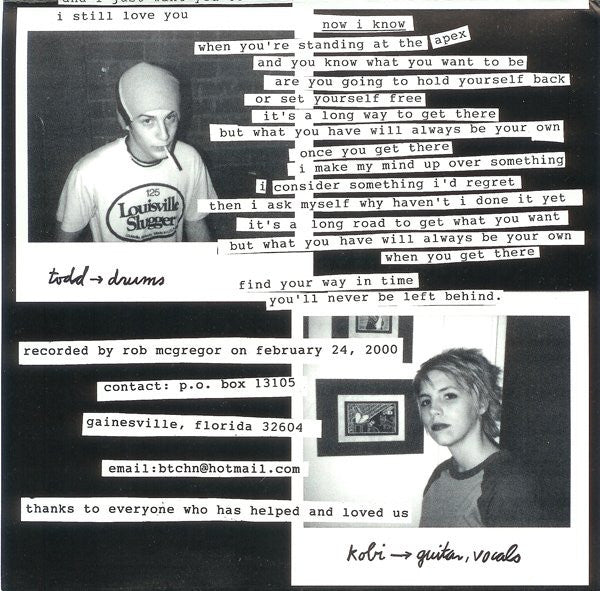 i still love you
now i know
when you're standing at the apex
and you know what you want to be
are you going to hold yourself back
or set yourself free
it's a long way to get there
but what you have will always be your own
once you get there
i make my mind up over something
i consider something i'd regret
then i ask myself why haven't i done it yet
it's a long road to get what you want
but what you have will always be your own
when you get there
find your way in time
you'll never be left behind.
125
Louisville
Slugger
todd → drums
recorded by rob mcgregor on february 24, 2000
contact: p.o. box 13105
gainesville, florida 32604
email:btchn@hotmail.com
thanks to everyone who has helped and loved us
kobi → guitar, vocals